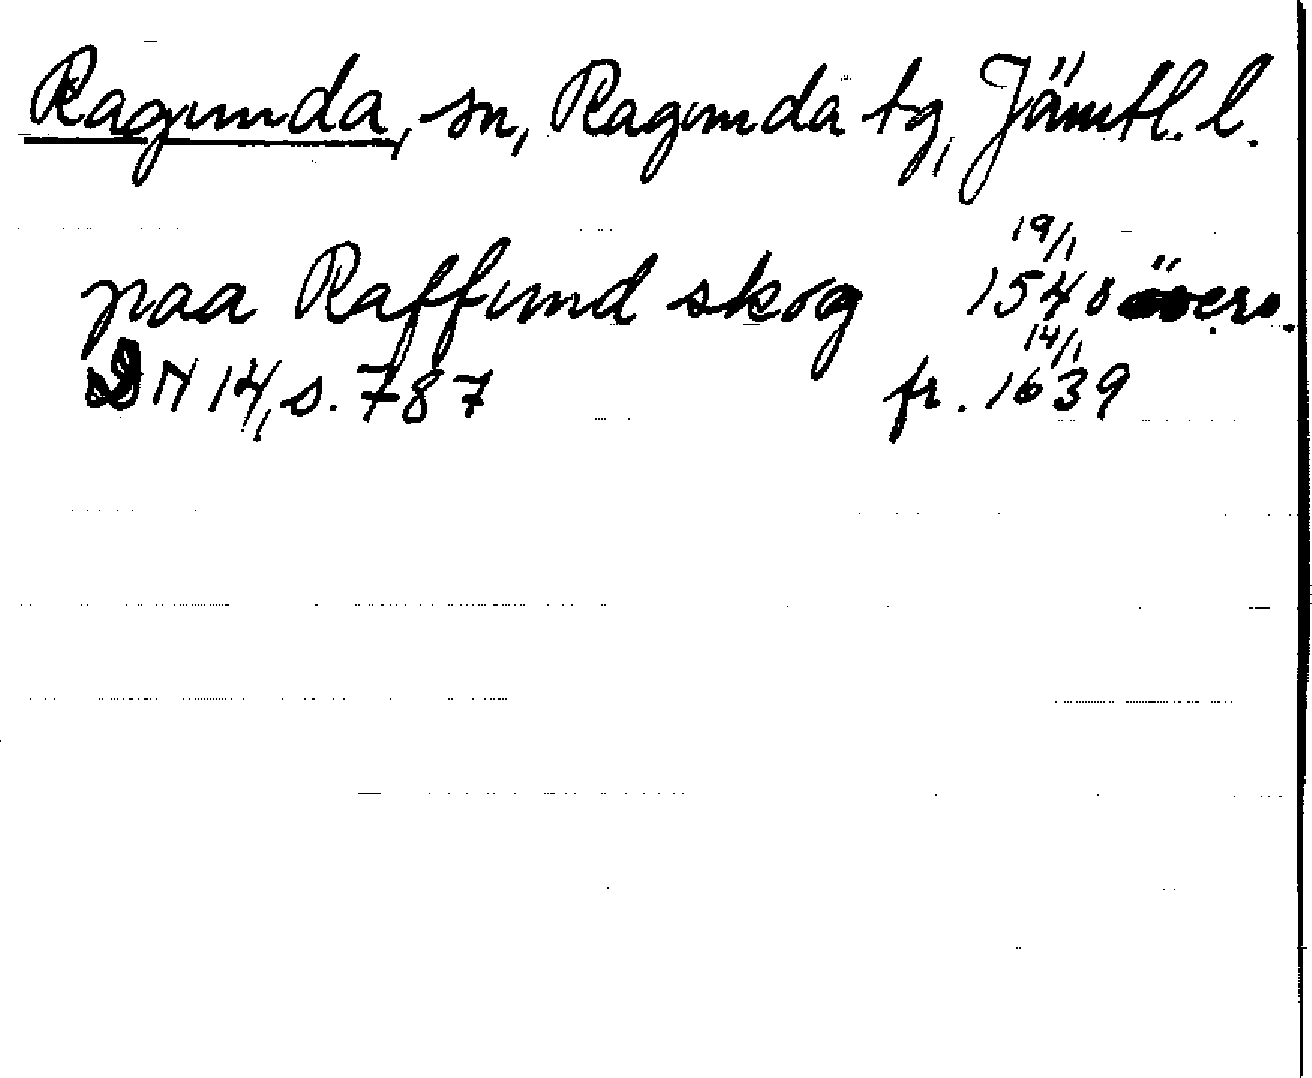 Ragunda, sn, Ragunda tg, Jämtl. l.
paa Raffund skog 19/1 1540 övers.
DN 14, s. 787 fr. 14/1 1639